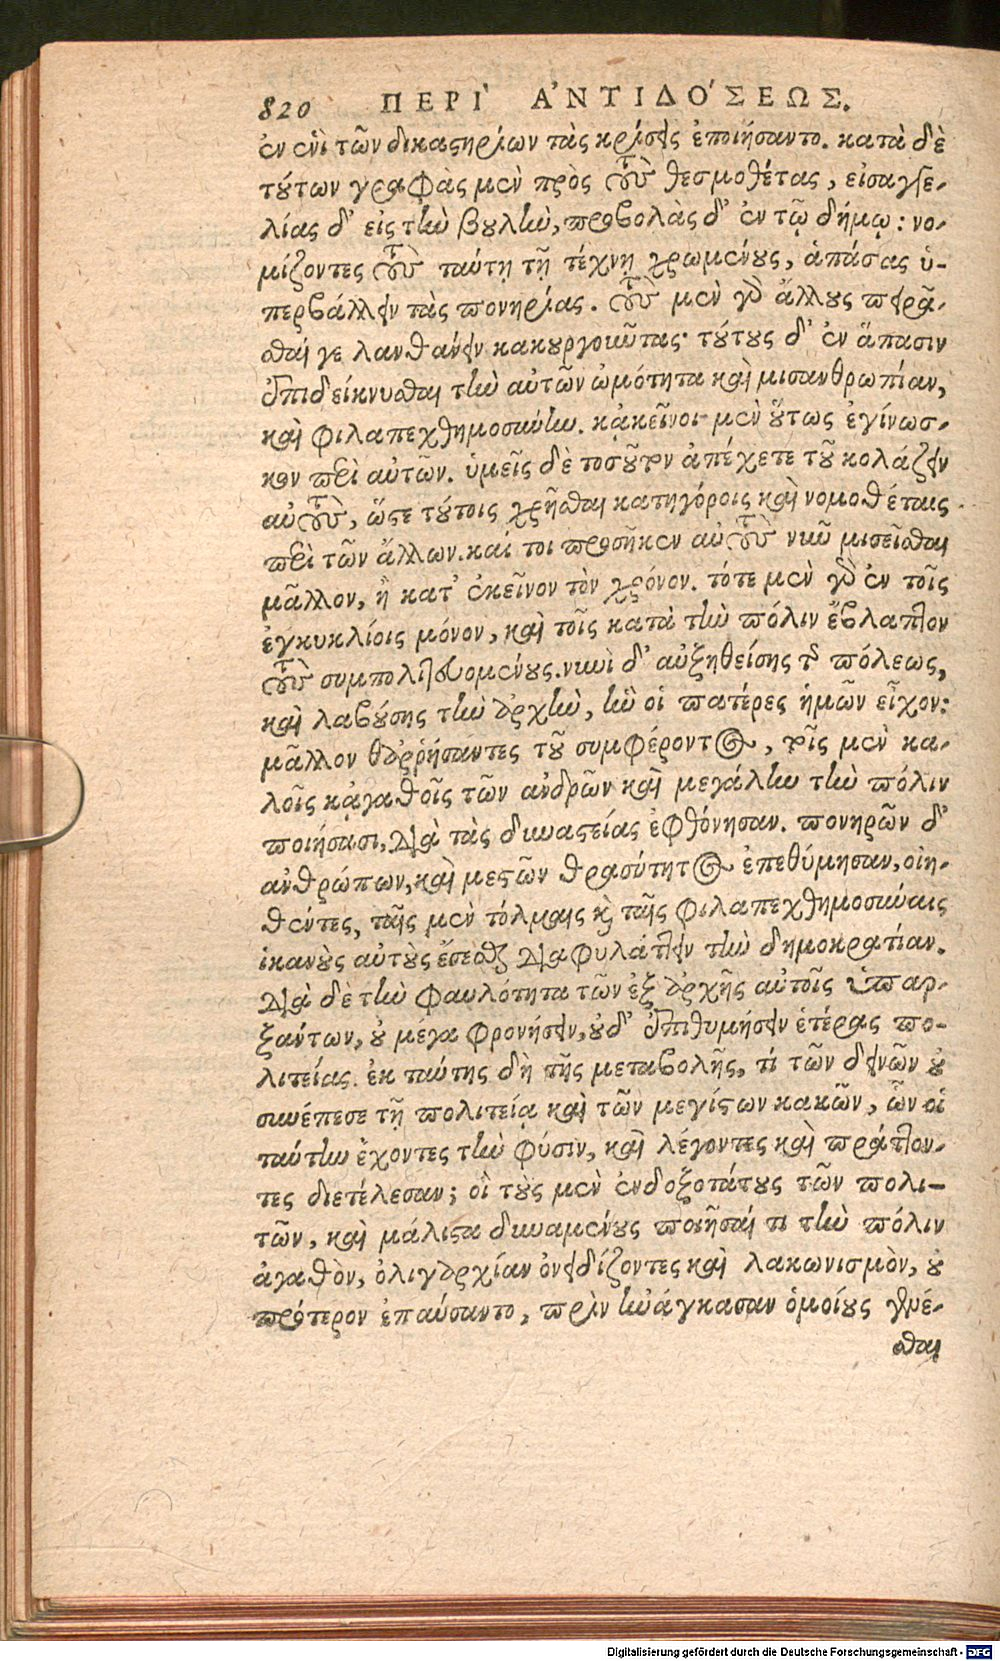 820 ΠΕΡΙ` Ἀ'ΝΤΙΔΟ'ΣΕΩΣ.
ἐν ἑνὶ τῶν δικαστηρίων τὰς κρίσεις ἐποιήσαντο. κατὰ δὲ
τούτων γραφὰς μὲν πρὸς τοὺς θεσμοθέτας, εἰσαγγε-
λίας δ' εἰς τὴν βουλὴν, προβολὰς δ' ἐν τῷ δήμῳ: νο-
μίζοντες τοὺς ταύτῃ τῇ τέχνῃ χρωμένους, ἁπάσας ὑ-
περβάλλειν τὰς πονηρίας. τοὺς μὲν γὰρ ἄλλους πειρᾶ-
σθαί γε λανθάνειν κακουργοῦντας· τούτους δ' ἐν ἅπασιν
ἐπιδείκνυσθαι τὴν αὐτῶν ὠμότητα καὶ μισανθρωπίαν,
καὶ φιλαπεχθημοσύνην. κᾀκεῖνοι μὲν οὕτως ἐγίνωσ-
κον περὶ αὐτῶν. ὑμεῖς δὲ τοσοῦτον ἀπέχετε τοῦ κολάζειν
αὐτοὺς, ὥστε τούτοις χρῆσθαι κατηγόροις καὶ νομοθέταις
περὶ τῶν ἄλλων. καί τοι προσῆκεν αὐτοὺς νῦν μισεῖσθαι
μᾶλλον, ἢ κατ' ἐκεῖνον τὸν χρόνον. τότε μὲν γὰρ ἐν τοῖς
ἐγκυκλίοις μόνον, καὶ τοῖς κατὰ τὴν πόλιν ἔβλαπτον
τοὺς συμπολιτευομένους. νυνὶ δ' αὐξηθείσης τῆς πόλεως,
καὶ λαβούσης τὴν ἀρχὴν, ἣν οἱ πατέρες ἡμῶν εἶχον:
μᾶλλον θαρρήσαντες τοῦ συμφέροντος, τοῖς μὲν κα-
λοῖς κᾀγαθοῖς τῶν ἀνδρῶν καὶ μεγάλην τὴν πόλιν
ποιήσασι, διὰ τὰς δυναστείας ἐφθόνησαν. πονηρῶν δ'
ἀνθρώπων, καὶ μεστῶν θρασύτητος ἐπεθύμησαν, οἰη-
θέντες, ταῖς μὲν τόλμαις καὶ ταῖς φιλαπεχθημοσύναις
ἱκανοὺς αὐτοὺς ἔσεσθαι διαφυλάττειν τὴν δημοκρατίαν.
διὰ δὲ τὴν φαυλότητα τῶν ἐξ ἀρχῆς αὐτοῖς ὑπαρ-
ξάντων, οὐ μέγα φρονήσειν, οὐδ' ἐπιθυμήσειν ἑτέρας πο-
λιτείας. ἐκ ταύτης δὴ τῆς μεταβολῆς, τί τῶν δεινῶν οὐ
συνέπεσε τῇ πολιτείᾳ καὶ τῶν μεγίστων κακῶν, ὧν οἱ
ταύτην ἔχοντες τὴν φύσιν, καὶ λέγοντες καὶ πράττον-
τες διετέλεσαν; οἳ τοὺς μὲν ἐνδοξοτάτους τῶν πολι-
τῶν, καὶ μάλιστα δυναμένους ποιῆσαί τι τὴν πόλιν
ἀγαθὸν, ὀλιγαρχίαν ὀνειδίζοντες καὶ λακωνισμὸν, οὐ
πρότερον ἐπαύσαντο, πρὶν ἠνάγκασαν ὁμοίους γενέ-
σθαι
Digitalisierung gefördert durch die Deutsche Forschungsgemeinschaft - DFG